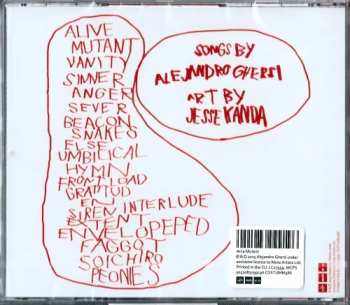 ALIVE
MUTANT
VANITY
SINNER
ANGER
SEVER
BEACON
SNAKES
ELSE
UMBILICAL
HYMN
FRONT LOAD
GRATITUD
EN
SIREN INTERLUDE
EXTENT
ENVELOPEPED
FAGGOT
SOICHIRO
PEONIES
SONGS BY
ALEJANDRO GHERSI
ART BY
JESSE KANDA
Arca Mutant